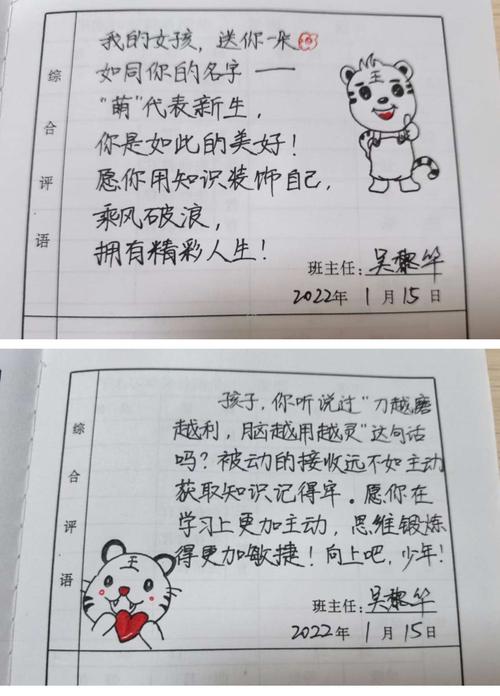 综合评语
我的女孩，送你一朵
如同你的名字——
“萌”代表新生，
你是如此的美好！
愿你用知识装饰自己，
乘风破浪，
拥有精彩人生！
班主任：吴黎华
2022年 1月15日
综合评语
孩子，你听说过“刀越磨
越利，脑越用越灵”这句话
吗？被动的接收远不如主动
获取知识记得牢。愿你在
学习上更加主动，思维锻炼
得更加敏捷！向上吧，少年！
班主任：吴黎华
2022年 1月15日